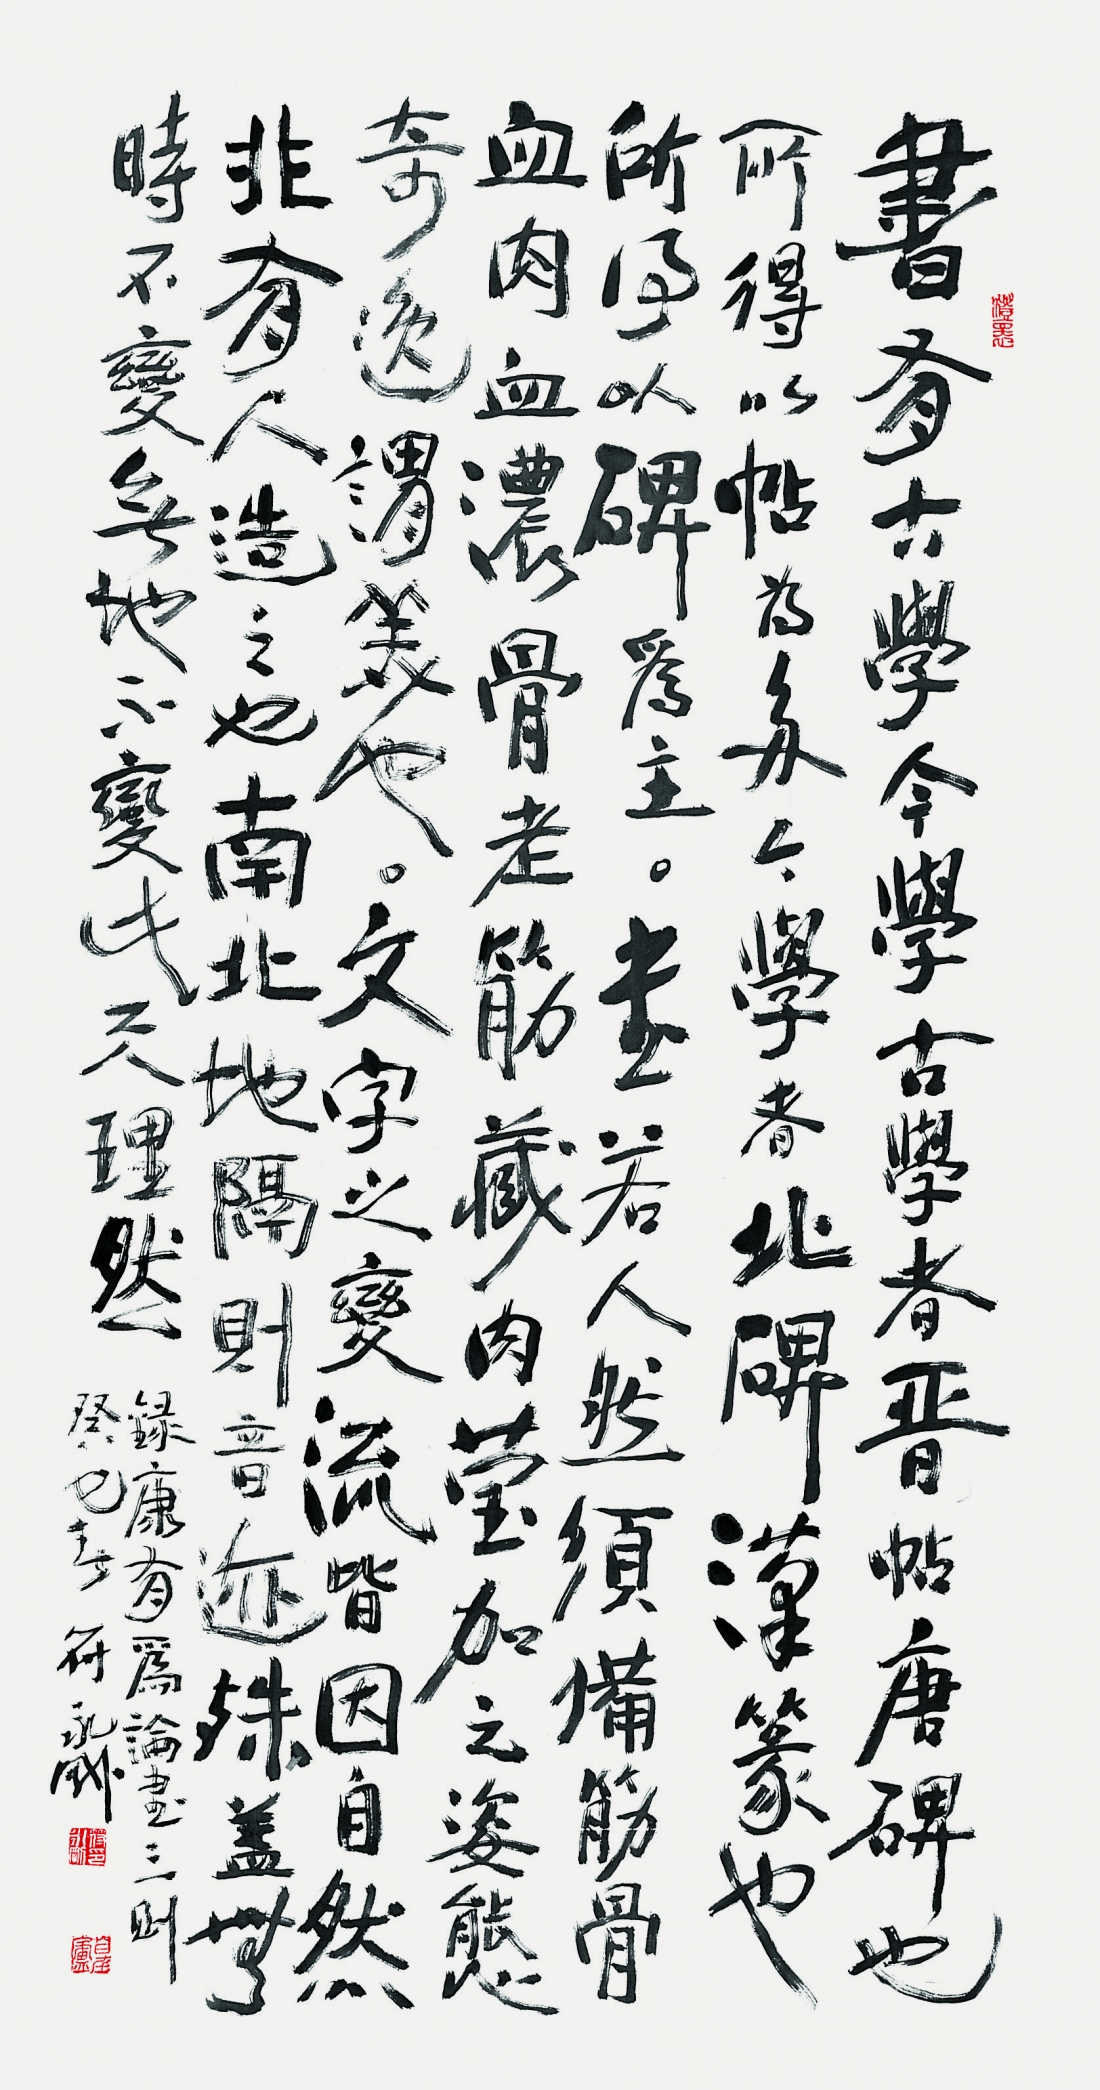 書有古學今學古學者晋帖唐碑也
所得以帖為多今學者北碑漢篆也
所得以碑爲主。書若人然須備筋骨
血肉血濃骨老筋藏肉莹加之姿態
奇逸謂美也。文字之變流皆因自然
非有人造之也南北地隔則音迹殊盖無
時不變無地不變此天理然
録康有爲論書三則
癸巳春符永剛